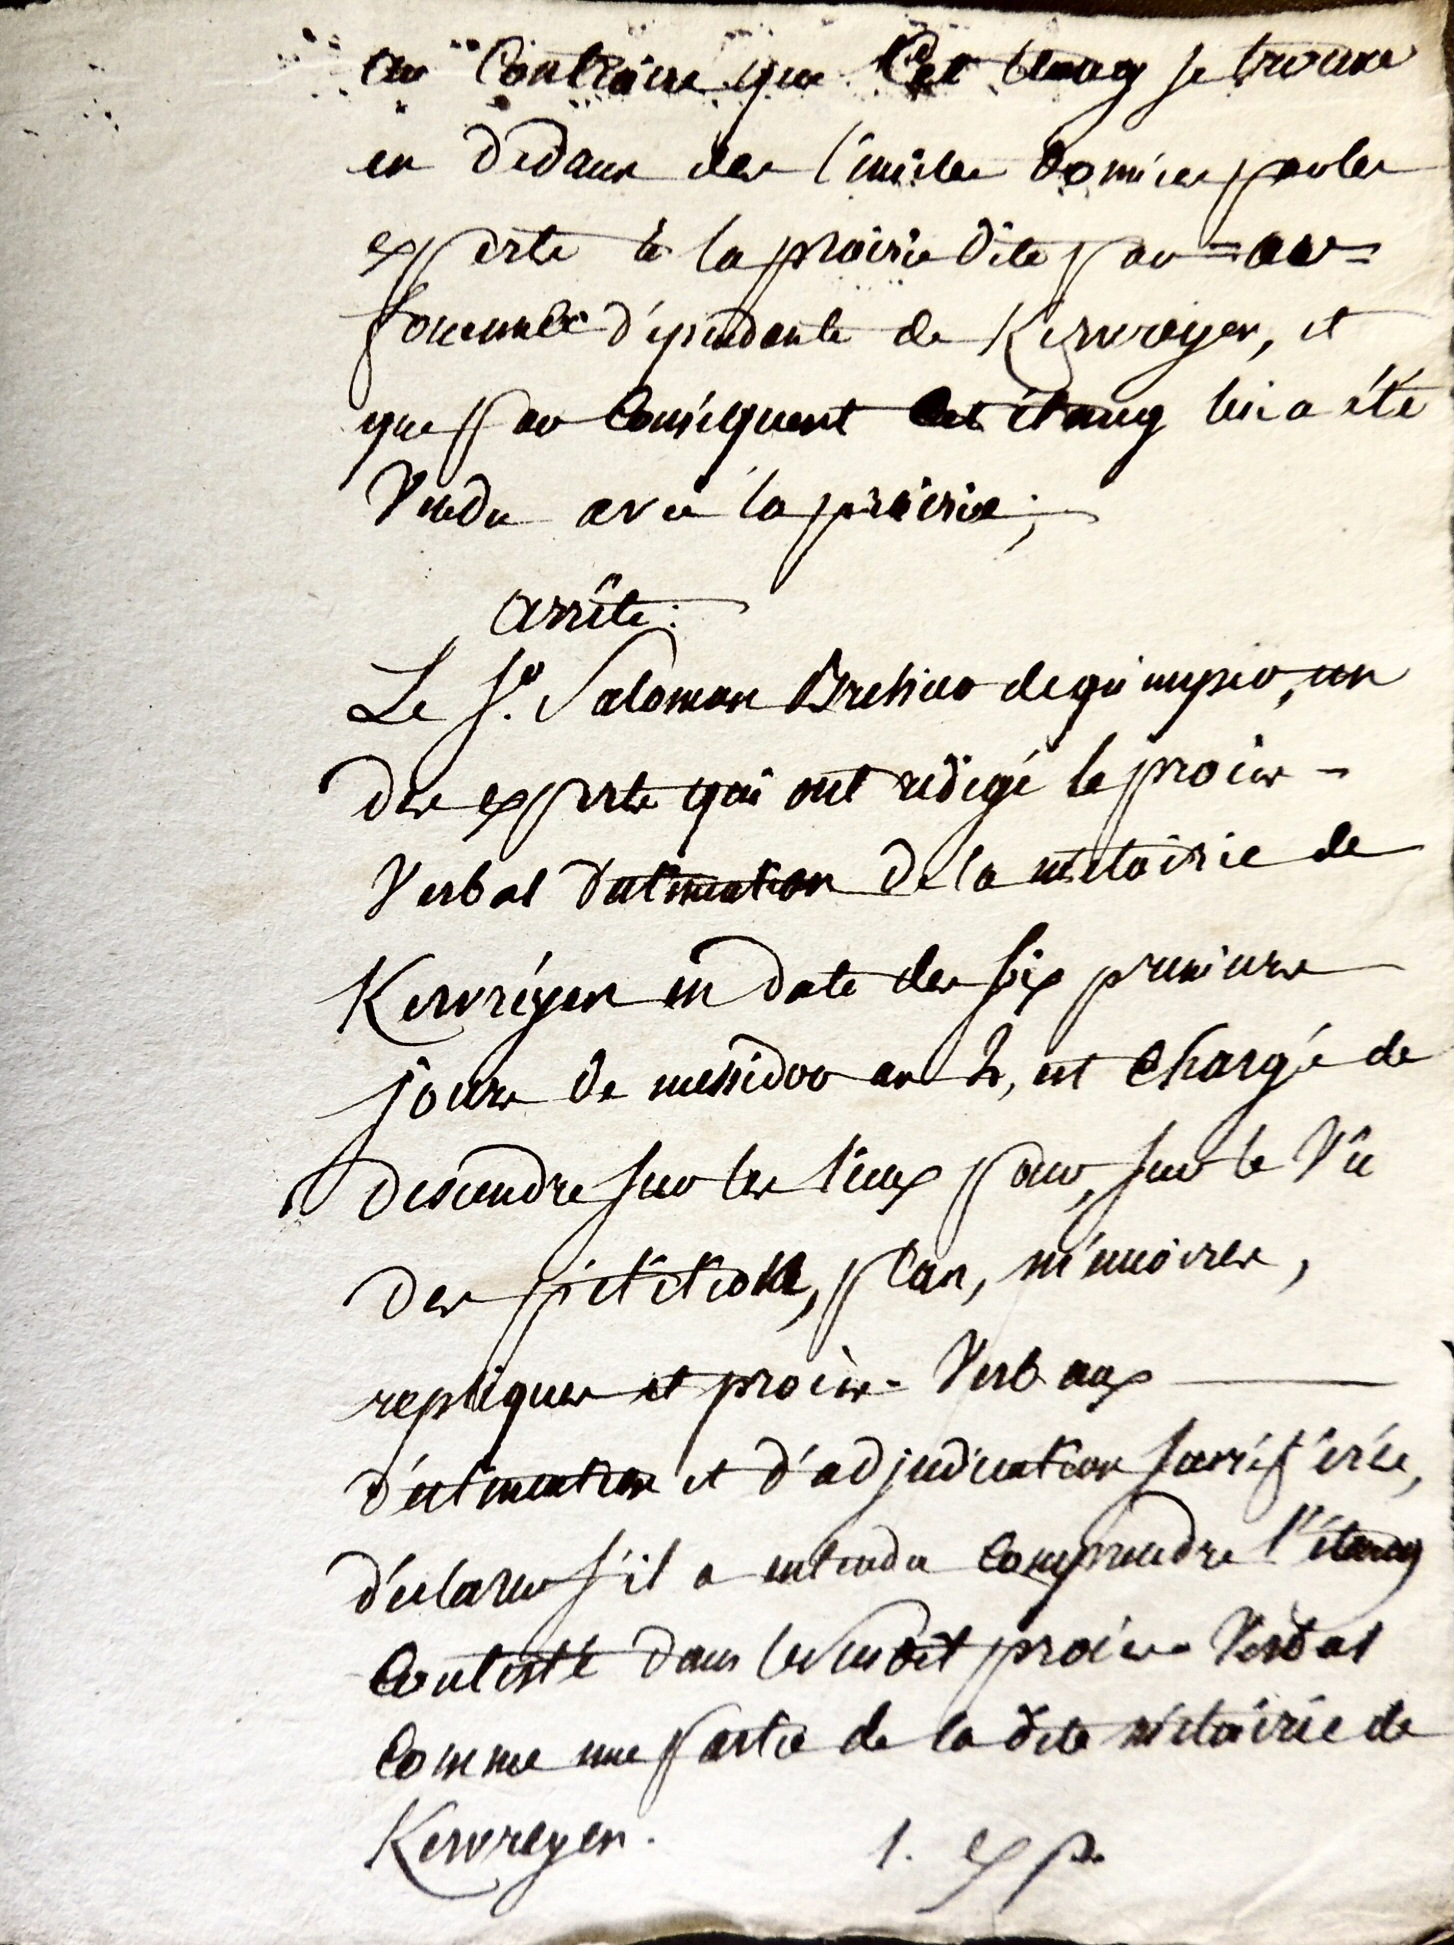 au Contraire que Cet étang se trouve
en dedans des limites données par les
experts à la prairie dite prat = ar =
dépendante de Kervreyen, et
que par Conséquent Cet étang lui a été
Vendu avec la prairie;
arrête:
Le Sr. Salomon Brehier de quimper, un
des experts qui ont rédigé le procès-
Verbal d'estimation de la métairie de
Kervréyen en date des six premiers
jours de messidor an 2, est Chargé de
descendre sur les lieux pour, sur le Vû
des pétitions, plan, mémoires,
repliques et procès-Verbaux
d'estimation et d'adjudication susréférés,
déclarer s'il a entendu Comprendre l'étang
Contesté dans le susdit procès-Verbal
Comme une partie de la dite métairie de
Kervreyen. 1. exp.